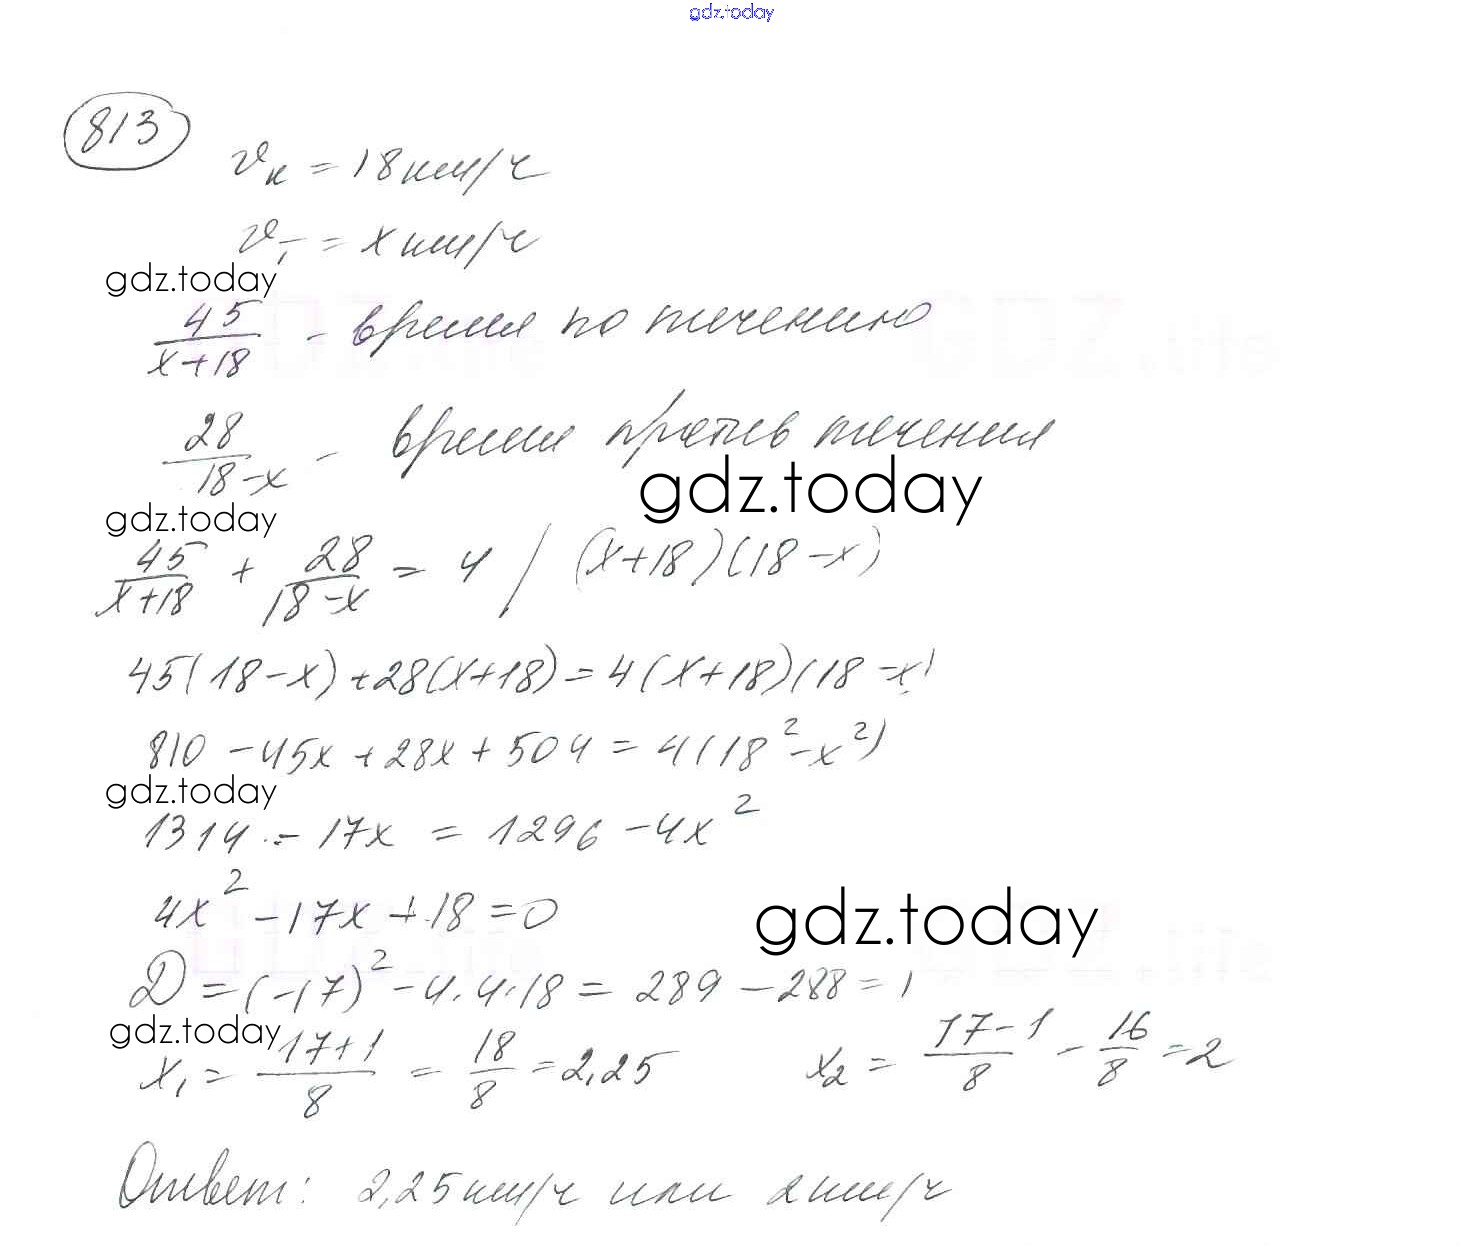 gdz.today
813
υк = 18 км/ч
υт = x км/ч
gdz.today
45/(x+18) - время по течению
28/(18-x) - время против течения
gdz.today
gdz.today
45/(x+18) + 28/(18-x) = 4 / (x+18)(18-x)
45(18-x)+28(x+18)=4(x+18)(18-x)
810 - 45x + 28x + 504 = 4(18²-x²)
gdz.today
1314 - 17x = 1296 - 4x²
4x² - 17x + 18 = 0
gdz.today
D = (-17)² - 4·4·18 = 289 - 288 = 1
gdz.today
x₁ = (17+1)/8 = 18/8 = 2,25 x₂ = (17-1)/8 - 16/8 = 2
Ответ: 2,25 км/ч или 2 км/ч